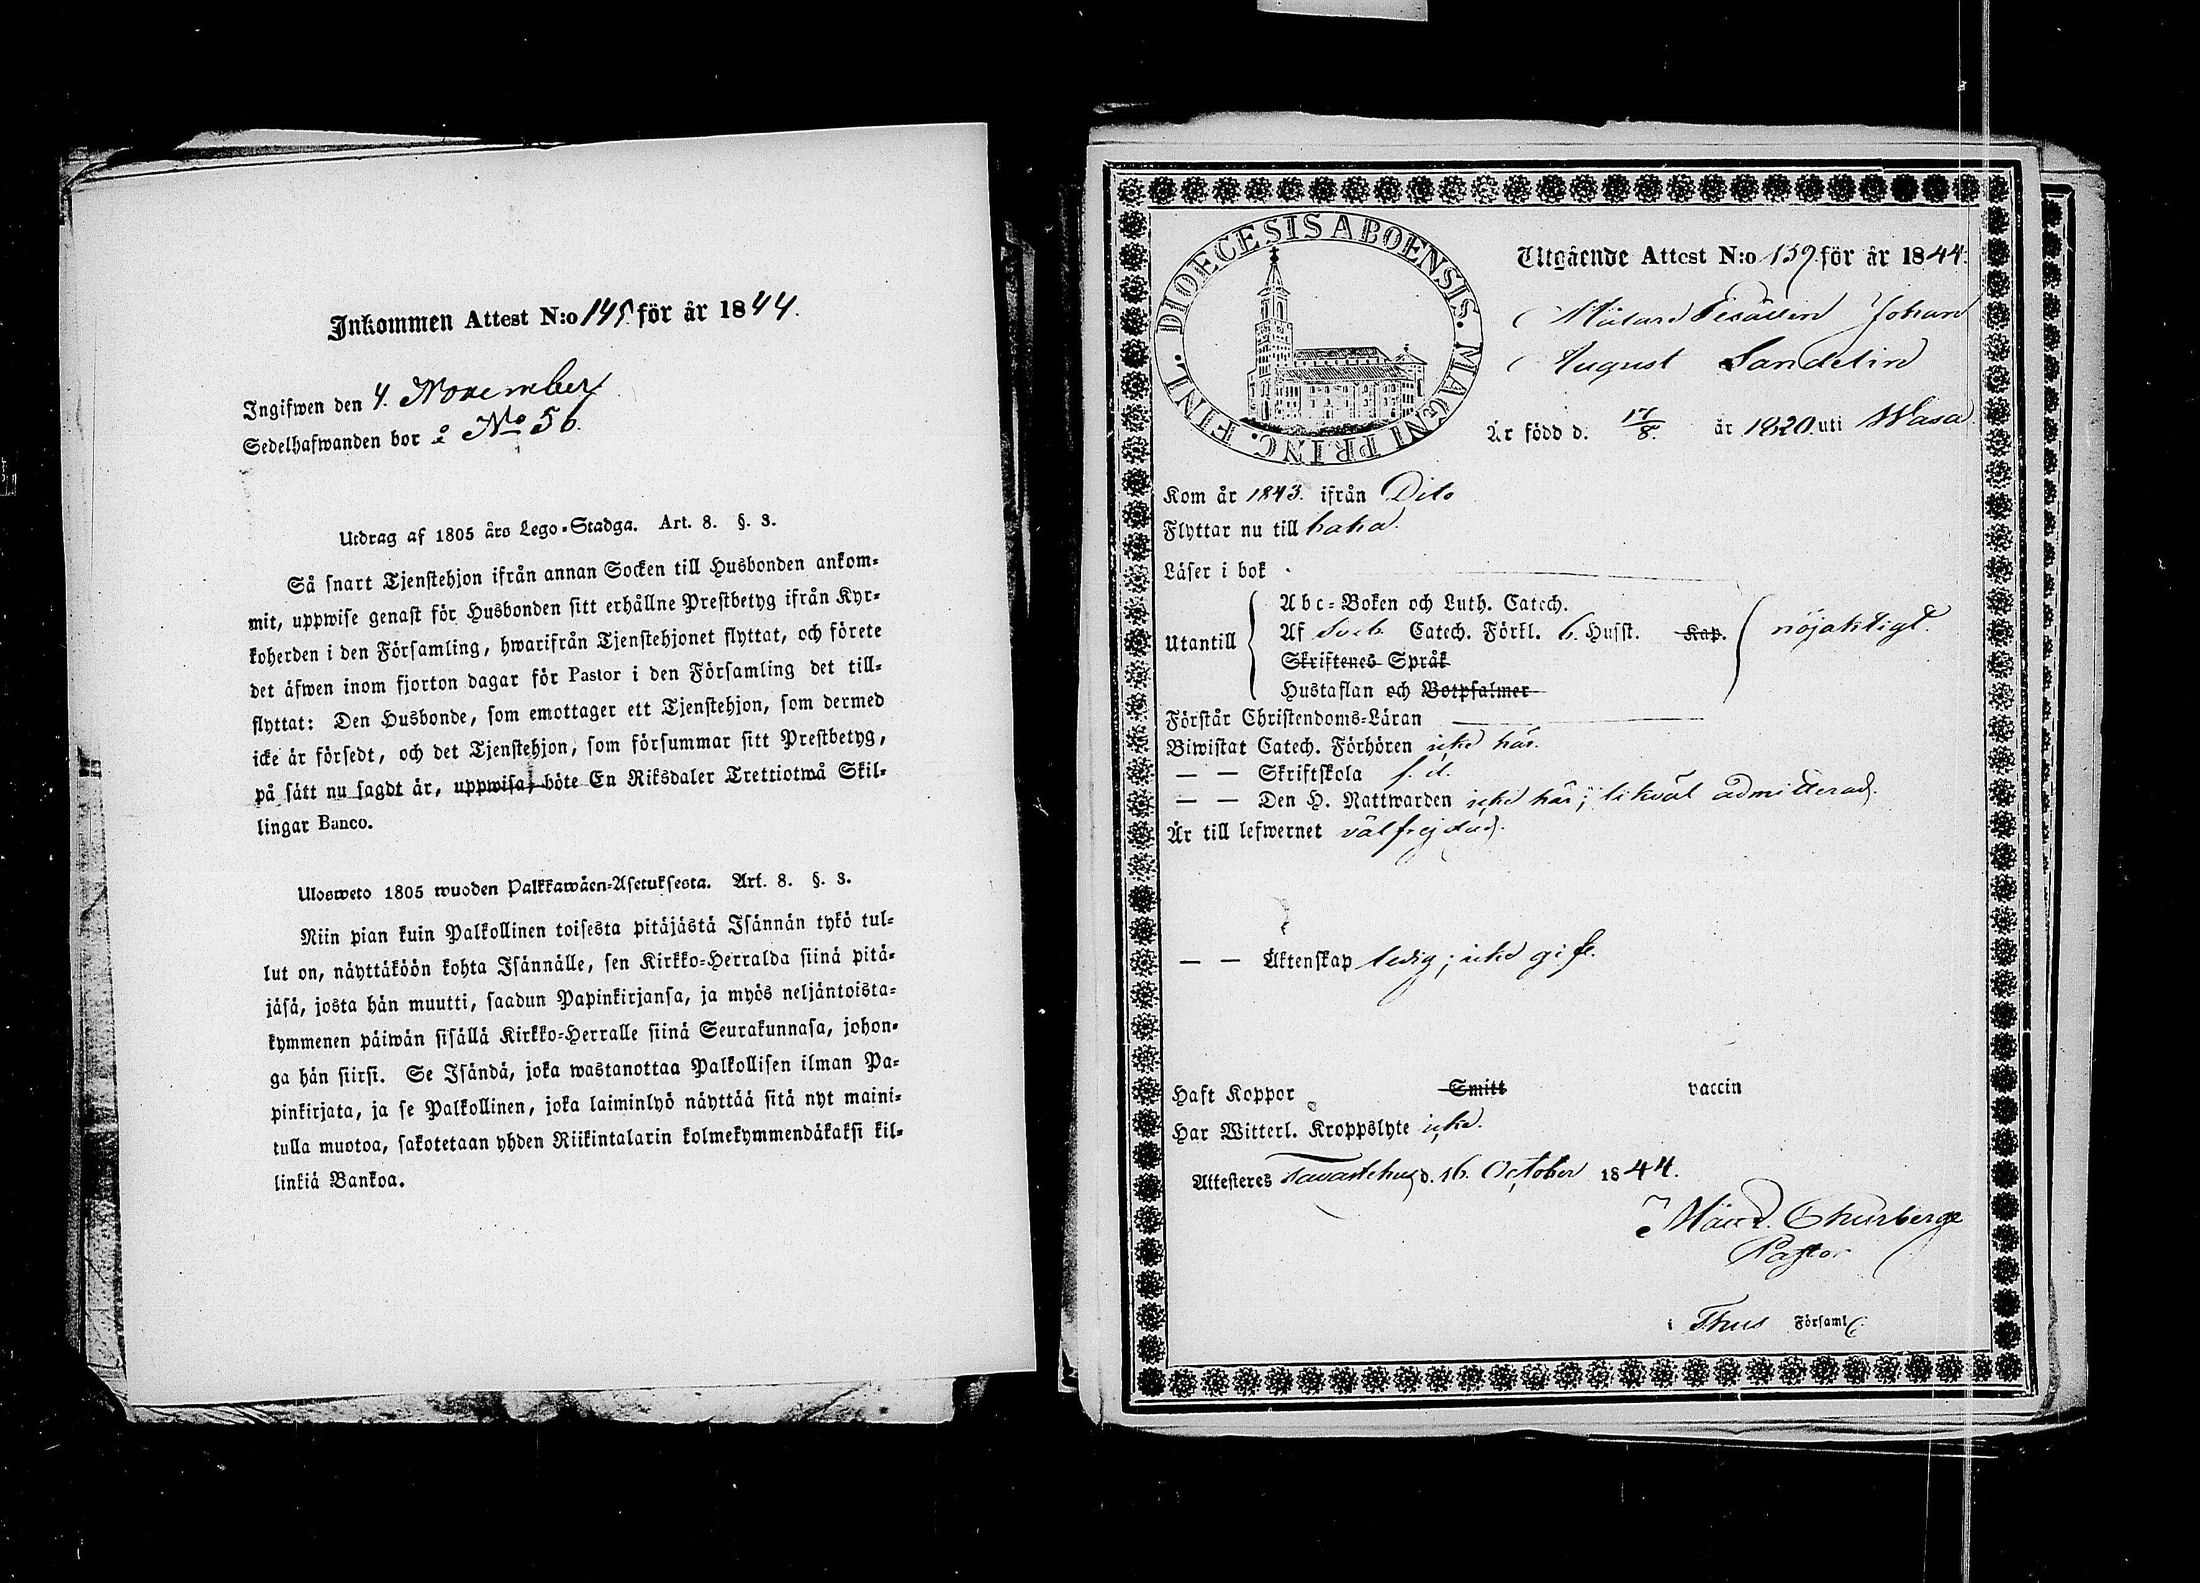 Inkommen Attest N:o 145 för år 1844.
Ingifwen den 4. November
Sedelhafwanden bor å No 56.
Utdrag af 1805 års Lego-Stadga. Art. 8. §. 3.
Så snart Tjenstehjon ifrån annan Socken till Husbonden ankom-
mit, uppwise genast för Husbonden sitt erhållne Prestbetyg ifrån Kyr-
koherden i den Församling, hwarifrån Tjenstehjonet flyttat, och förete
det äfwen inom fjorton dagar för Pastor i den Församling det till-
flyttat: Den Husbonde, som emottager ett Tjenstehjon, som dermed
icke är försedt, och det Tjenstehjon, som försummar sitt Prestbetyg,
på sätt nu sagdt är, uppwisa, böte En Riksdaler Trettiotwå Skil-
lingar Banco.
Ulosweto 1805 wuoden Palkkawäen-Asetuksesta. Art. 8. §. 3.
Niin pian kuin Palkollinen toisesta pitäjästä Isännän tykö tul-
lut on, näyttäköön kohta Isännälle, sen Kirkko-Herralda siinä pitä-
jäsä, josta hän muutti, saadun Papinkirjansa, ja myös neljäntoista-
kymmenen päiwän sisällä Kirkko-Herralle siinä Seurakunnasa, johon-
ga hän siirsi. Se Isändä, joka wastanottaa Palkollisen ilman Pa-
pinkirjata, ja se Palkollinen, joka laiminlyö näyttää sitä nyt maini-
tulla muotoa, sakotetaan yhden Riikintalarin kolmekymmendäkaksi kil-
linkiä Bankoa.
DIOECESIS ABOENSIS. MAGNI PRINC. FINL.
Utgående Attest N:o 139 för år 1844.
Målare Gesällen Johan
August Sandelin
Är född d. 17/8. år 1820 uti Wasa
Kom år 1843. ifrån Dito
Flyttar nu till baka.
Läser i bok
Utantill
Abc-Boken och Luth. Catech.
Af Sveb. Catech. Förkl. 6. Husst. Kap.
Skriftenes Språk
Hustaflan och Botpsalmer
nöjaktigt.
Förstår Christendoms-Läran
Biwistat Catech. Förhören icke här.
— — Skriftskola s. d.
— — Den H. Nattwarden icke här; likväl admitterad.
Är till lefwernet välfrejdad.
— — Äktenskap ledig; icke gift.
Haft Koppor Smitt vaccin
Har Witterl. Kroppslyte icke.
Attesteres Tavastehus d. 16. October 1844.
Churberg
Pastor
i Thus Församl.